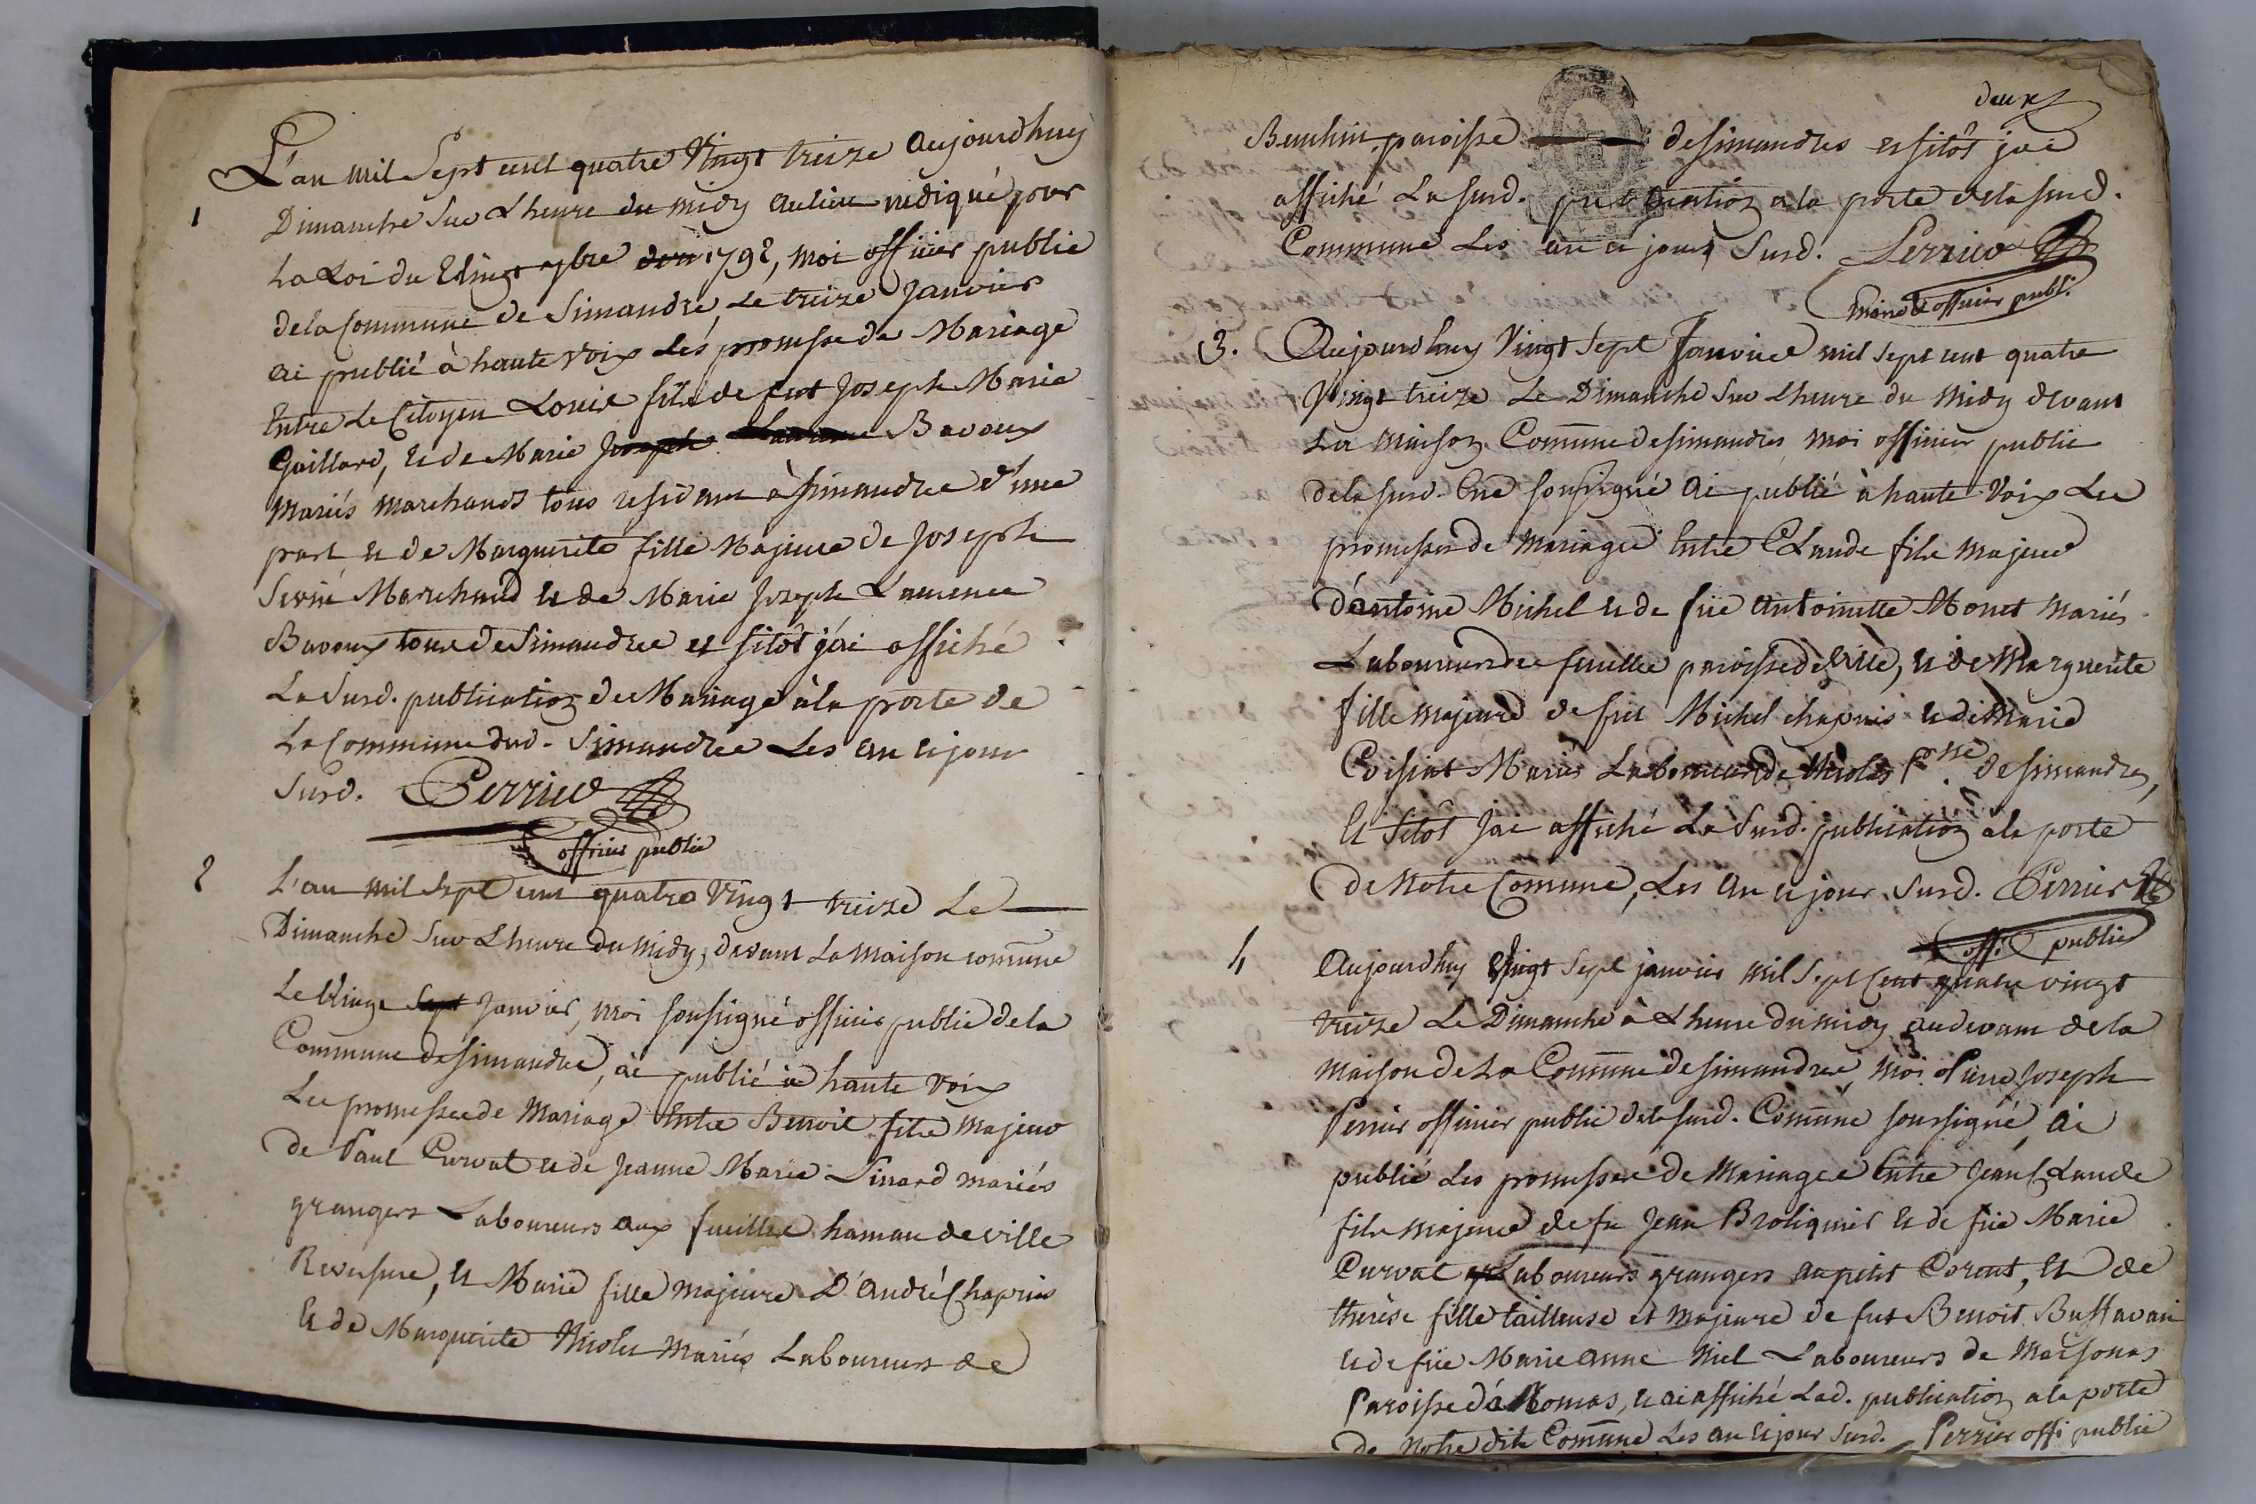 L'an mil Sept cent quatre Vingt treize Aujourdhuy
1
Dimanche Sur Lheure du midy au lieu indiqué pour
La Loi du Vingt 7bre 1792, moi officier public
dela Commune de Simandre, Le treize Janvier
ai publié à haute voix Les promesse de Mariage
Entre Le Citoyen Louis fils de feut Joseph Marie
Gaillard, et de Marie Joseph Bavoux
Mariés Marchands tous residant à Simandre d'une
part et de Marguerite fille Majeure de Joseph
Marchand et de Marie Joseph Laurence
Bavoux tous de Simandre et sitôt j'ai affiché
La Susd. publication de Mariage à la porte de
La Commune dud. Simandre Les an et jour
Susd. Perrier
officier public
2
L'an mil Sept cent quatre Vingt treize Le
Dimanche Sur Lheure du midy, devant La Maison comune
Le Vingt Sept Janvier, moi soussigné officier public dela
Commune de Simandre, ai publié à haute voix
Les promesses de Mariage Entre Benoit fils majeur
de Paul Curvat et de Jeanne Marie Pinard mariés
grangers Laboureurs aux fueilles hamau de ville
Reversure, et Marie fille majeure D'André Chapuis
et de Marguerite Nicolas Mariés Laboureurs de
deux
paroisse de Simandres et sitôt jai
affiché La susd. publication a la porte dela susd.
Commune Les an et jours Susd. Perrier
Maire & officier publi.
3. Aujourdhuy Vingt Sept Janvier mil sept cent quatre
Vingt treize Le Dimanche Sur Lheure du Midy devant
La Maison Comune de simandres, moi officier public
dela susd. Cne soussigné ai publié à haute Voix Les
promesses de Mariage Entre Claude fils majeur
d'antoine Michel et de füe Antoinette Monet Mariés
Laboureurs des fueilles paroisse de Ville, et de Marguerite
fille majeure de feu Michel chapuis et de Marie
Coissiat Mariés Laboureurs de Psse de simandres,
et sitôt jai affiché La Susd. publication à la porte
de Notre Comune, Les an et jour Susd. Perrier
offi. public
4
Aujourdhuy Vingt Sept janvier mil Sept Cent quatre vingt
treize Le Dimanche à Lheure du midy audevant dela
Maison de La Comune de simandre, moi Pierre Joseph
Perrier officier public dela susd. Comune soussigné, ai
publié Les promesses de Mariages Entre Jean Claude
fils majeur de fu Jean Broliquier et de füe Marie
Curvat Laboureurs grangers au petit Corent, et de
thérèse fille tailleuse et majeure de fut Benoit Buffavan
et de füe Marie anne Niel Laboureurs de Maisonas
Paroisse de Romas, et ai affiché Lad. publication a la porte
de Notre dite Comune Les an et jour susd. Perrier offi public